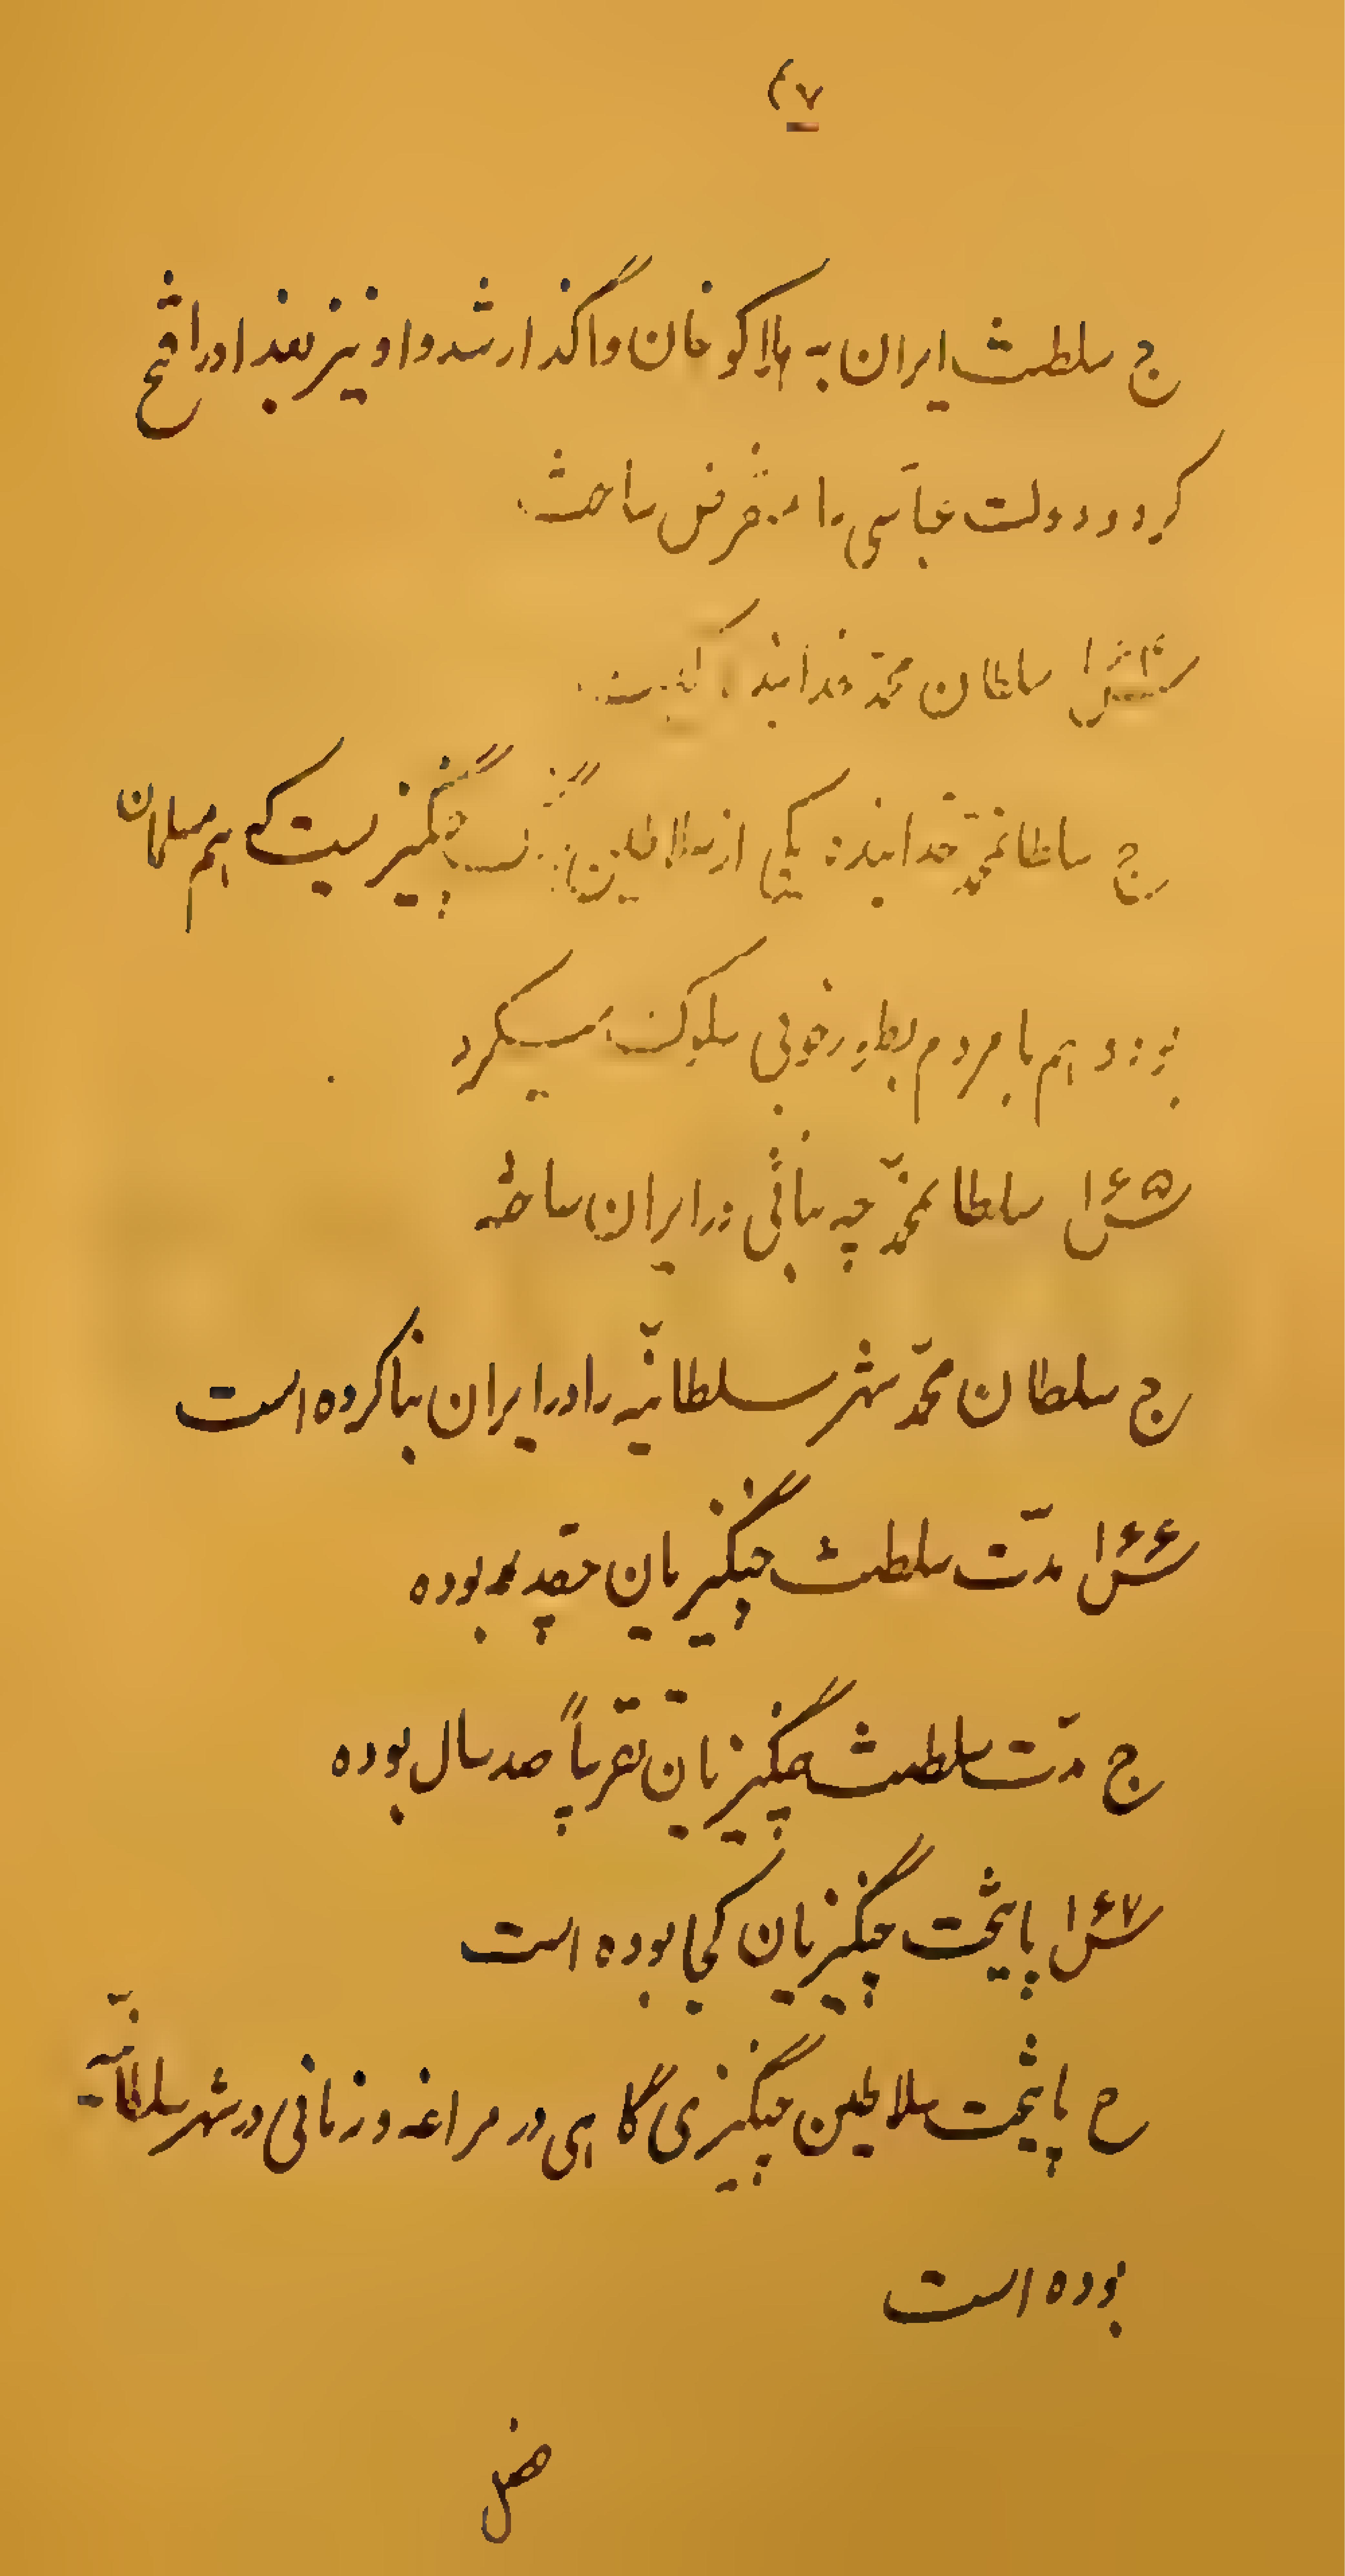 ۴۷
ج سلطنت ایران به هلاکو خان واگذار شد و او نیز بغداد را فتح
کرد و دولت عباسی را منقرض ساخت
س۱۶۴ سلطان محمّد خدابنده کیست
ج سلطانمحمّد خدابنده یکی از سلاطین بزرگ چنگیزیست که هم مسلمان
بود و هم با مردم بطور خوبی سلوک میکرد
س۱۶۵ سلطانمحمّد چه بنائی در ایران ساخته
ج سلطان محمّد شهر سلطانیّه را در ایران بنا کرده است
س۱۶۶ مدّت سلطنت چنگیزیان چقدر بوده
ج مدّت سلطنت چنگیزیان تقریباً صد سال بوده
س۱۶۷ پایتخت چنگیزیان کجا بوده است
ج پایتخت سلاطین چنگیزی گاهی در مراغه و زمانی در شهر سلطانیّه
بوده است
فصل